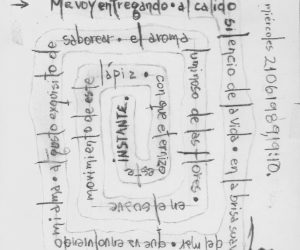 Me voy entregando • al cálido
silencio de la vida • en la brisa sua
del mar • que va envolviendo
mi alma • al gusto exquisito de
saborear • el aroma
luminoso de las flores •
en el suave
movimiento de este
lápiz •
con que eternizo
INSTANTE.
miércoles 21061989,19:10.